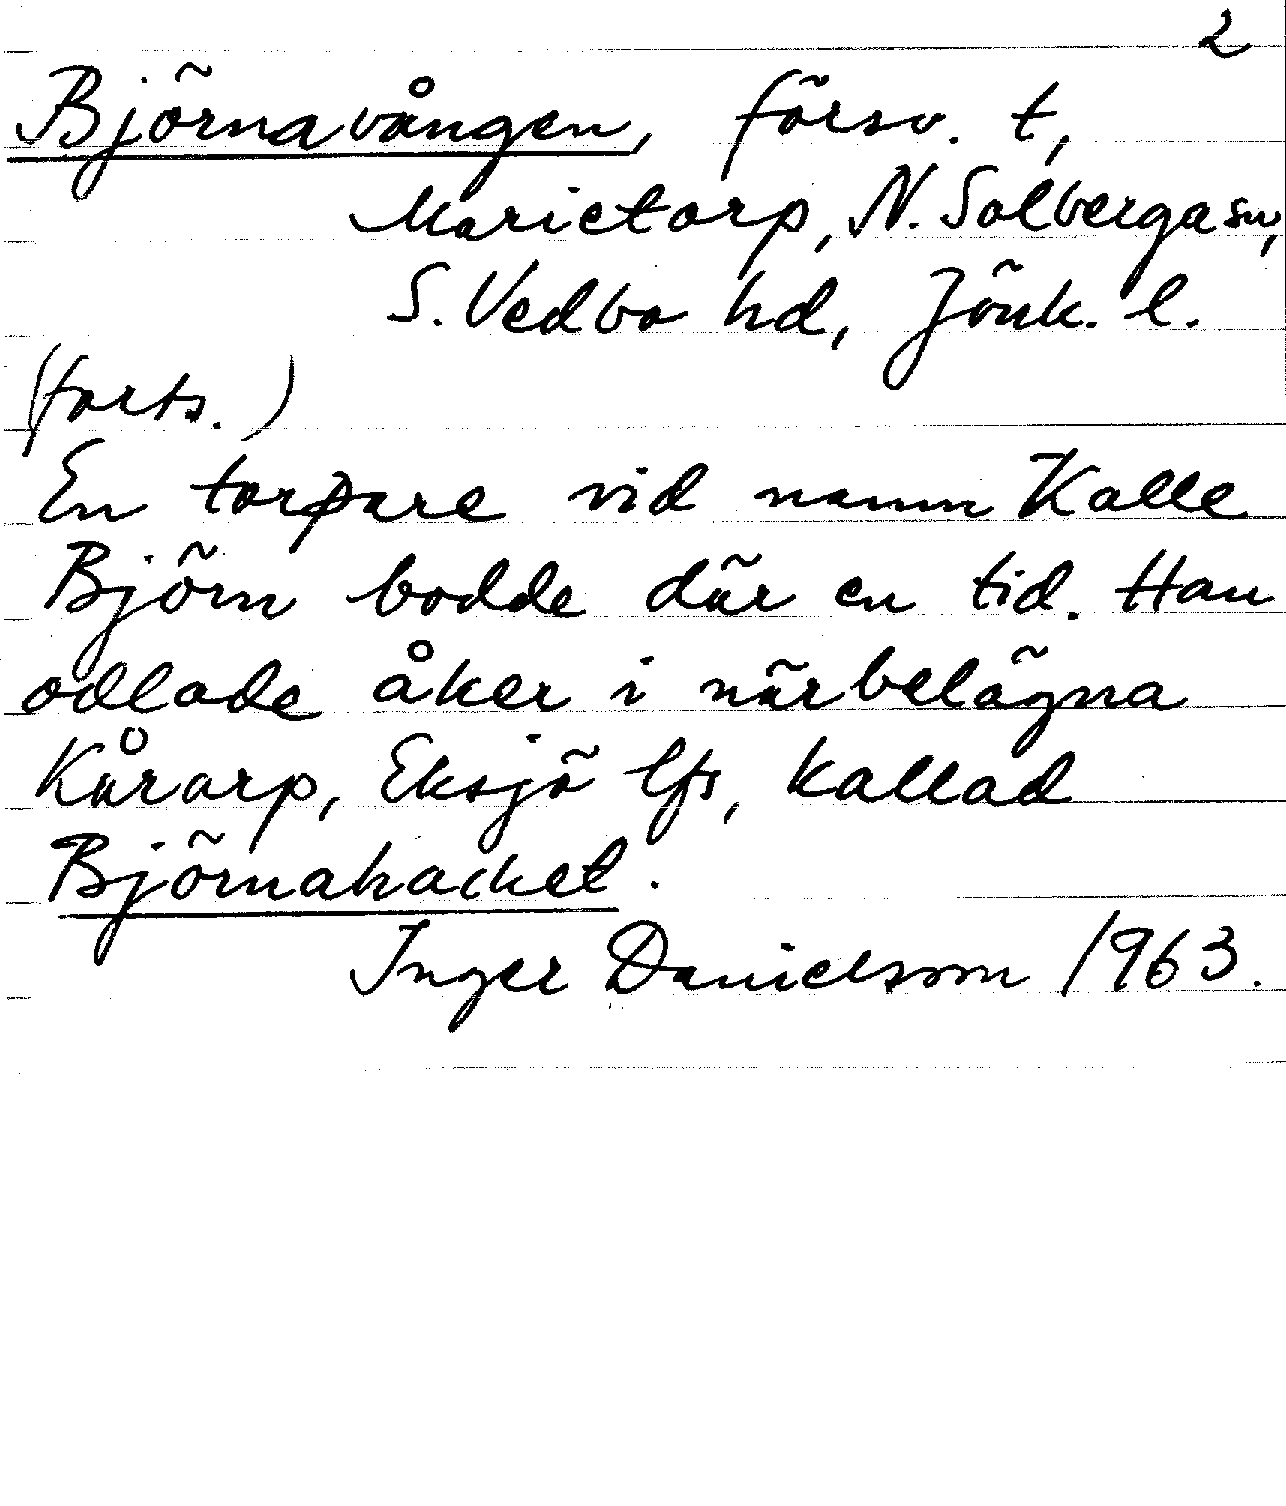 2
Björnavången, försv. t,
Marietorp, N. Solberga sn,
S. Vedbo hd, Jönk. l.
(forts.)
En torpare vid namn Kalle
Björn bodde där en tid. Han
odlade åker i närbelägna
Kårarp, Eksjö lfs, kallad
Björnahacket.
Inger Danielsson 1963.